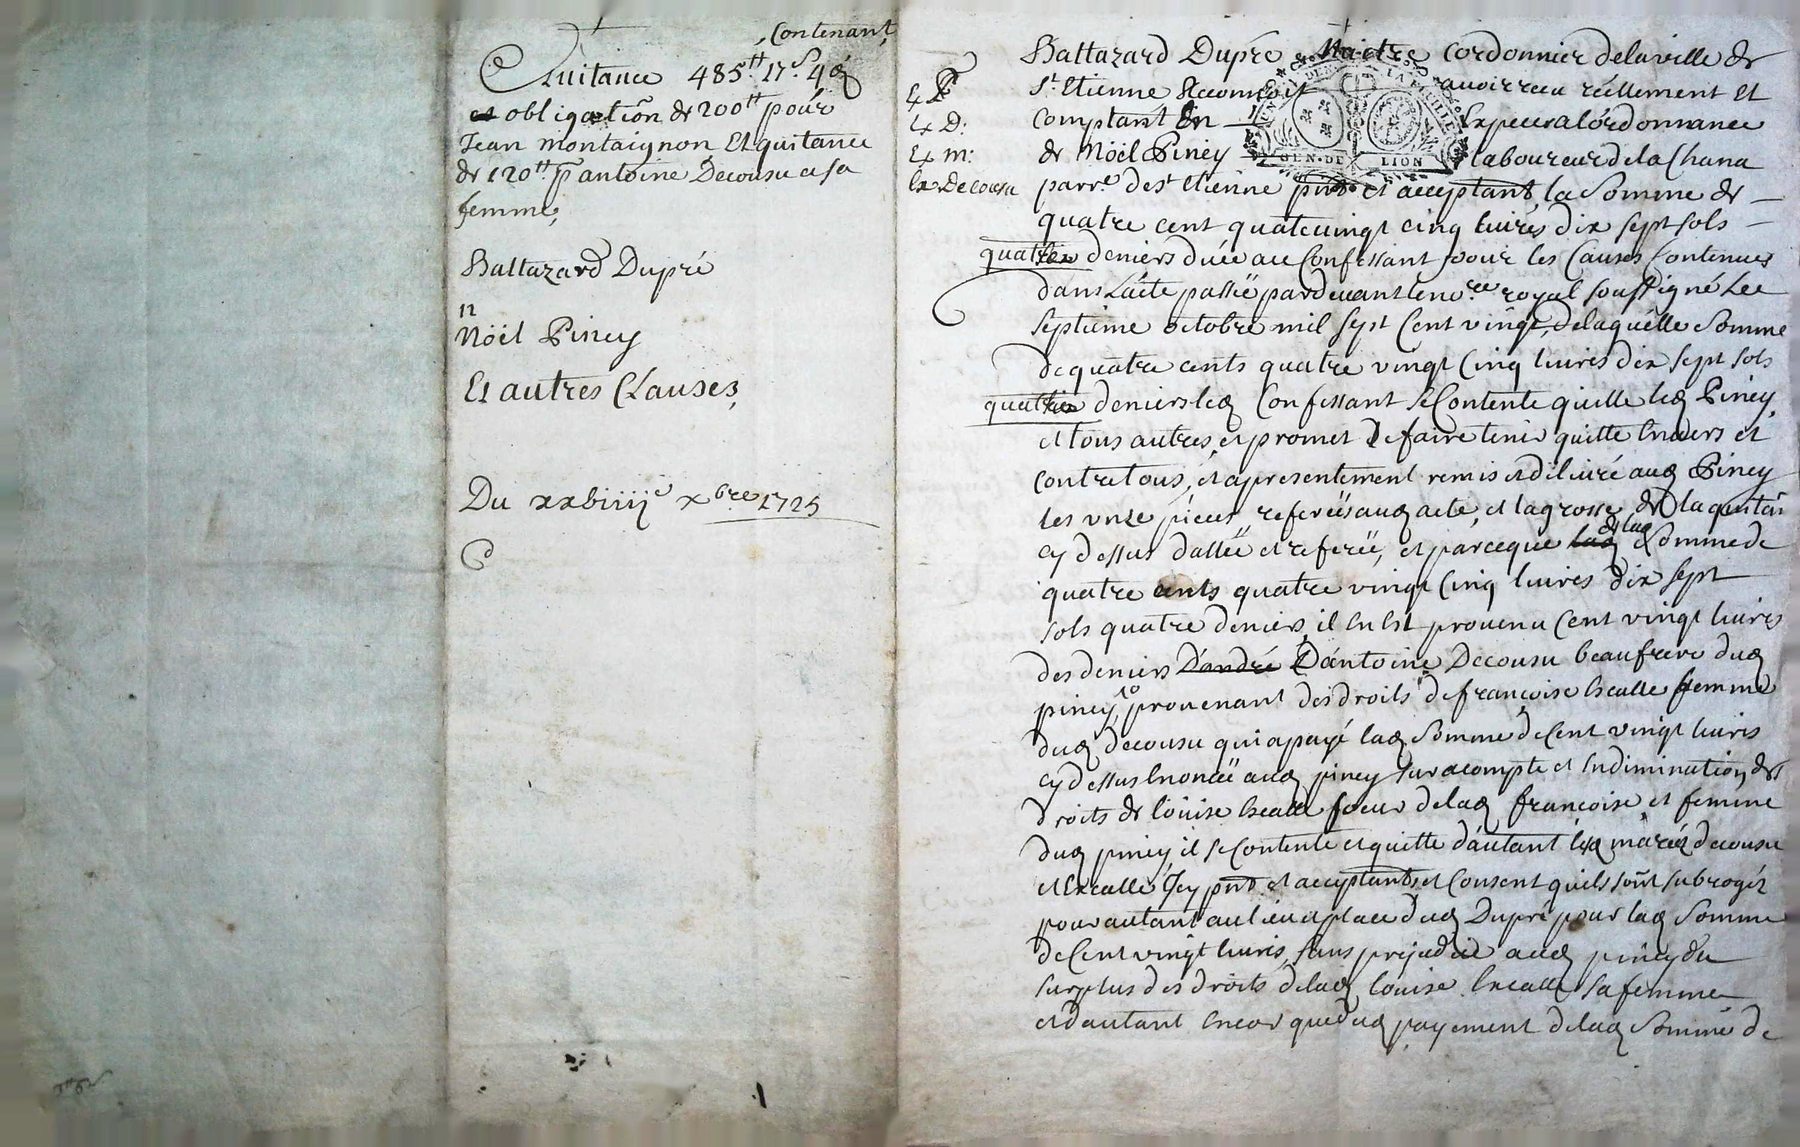 Contenant
Quitance 485tt 17s 4d
et obligatiõn de 200tt pour
Jean montaignon Et quitance
de 120tt p antoine Decousu a sa
femme,
Baltazard Dupré
n
Nöél Piney
Et autres Clauses,
Du xxbiiije xbre 1725
Ex D:
Ex m:
Ex Decousu
Baltazard Dupre Maictre Cordonnier delaville de
St Etienne Reconnoit avoir receu réellement Et
Comptant En Especes a lórdonnance
de Nöél Piney laboureur dela Chana
parre de st etienne pnt et acceptant la Somme de
quatre cent quatrevingt cinq livres dix sept sols
quatre deniers düée au Confessant pour les Causes Contenues
dans Lácte passéé pardevant le nore royal soussigné Le
septiéme octobre mil sept Cent vingt, delaquelle Somme
de quatre cents quatre vingt Cinq livres dix sept sols
quatre deniers led Confessant se Contente quitte led Piney
et tous autres, et promet de faire tenir quitte Envers et
Contre tous, et a presentement remis et délivré aud Piney
les unze piéces referéés aud acte, et la grosse de la quitãn
cy dessus dattéé et referéé, et parceque lad de lad Somme de
quatre cents quatre vingt Cinq livres dix sept
sols quatre deniers, il En Est provenu Cent vingt livres
des deniers D'andré D'antoine Decousu beaufrere dud
piney, provenant des droits de françoise Escalle femme
dud decousu qui a payé lad Somme de Cent vingt livres
cy dessus Enoncéé aud piney sur acompte et En diminution des
droits de loüise Escalle soeur delad françoise, et femme
dud piney, il se Contente et quitte dáutant lesd mariéz decousu
et Escalle Jcy pnts et acceptants, et Consent quils soint subrogéz
pour autant au lieu et place dud Dupré pour lad Somme
de Cent vingt livres, sans prejudice aud piney du
surplus des droits delad loüise Escalle sa femme
et dautant Encor que dud payement delad Somme de
GEN·DE LION